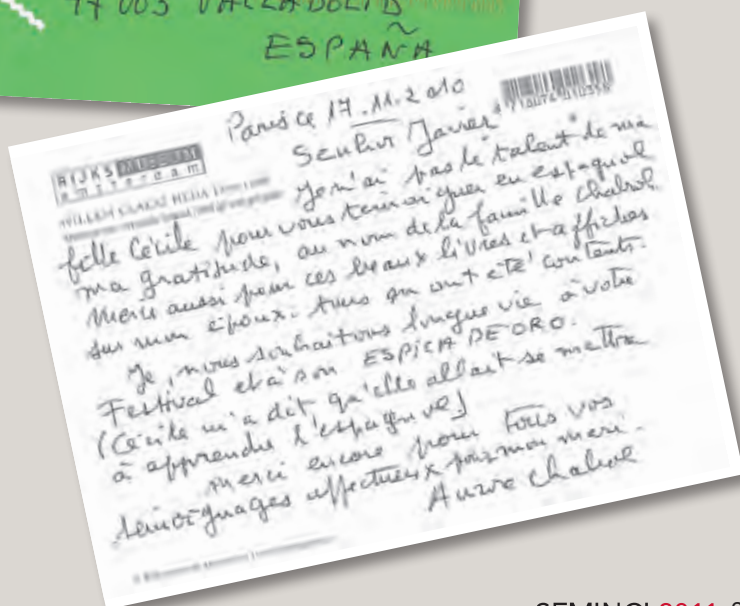 47003 VALLADOLID
ESPAÑA
Paris ce 17.11.2010
Senhor Javier
Je n'ai pas le talent de ma
fille Cécile pour vous témoigner en espagnol
ma gratitude, au nom de la famille Chabrol.
Merci aussi pour ces beaux livres et affiches
sur mon époux. tous en ont été contents.
Je, nous souhaitons longue vie à votre
Festival et à son ESPIGA DE ORO.
(Cécile m'a dit qu'elle allait se mettre
à apprendre l'espagnol)
Merci encore pour tous vos
témoignages affectueux pour mon mari.
Aurore Chabrol
RIJKSMUSEUM
amsterdam
WILLEM CLAESZ HEDA
SEMINCI 2011